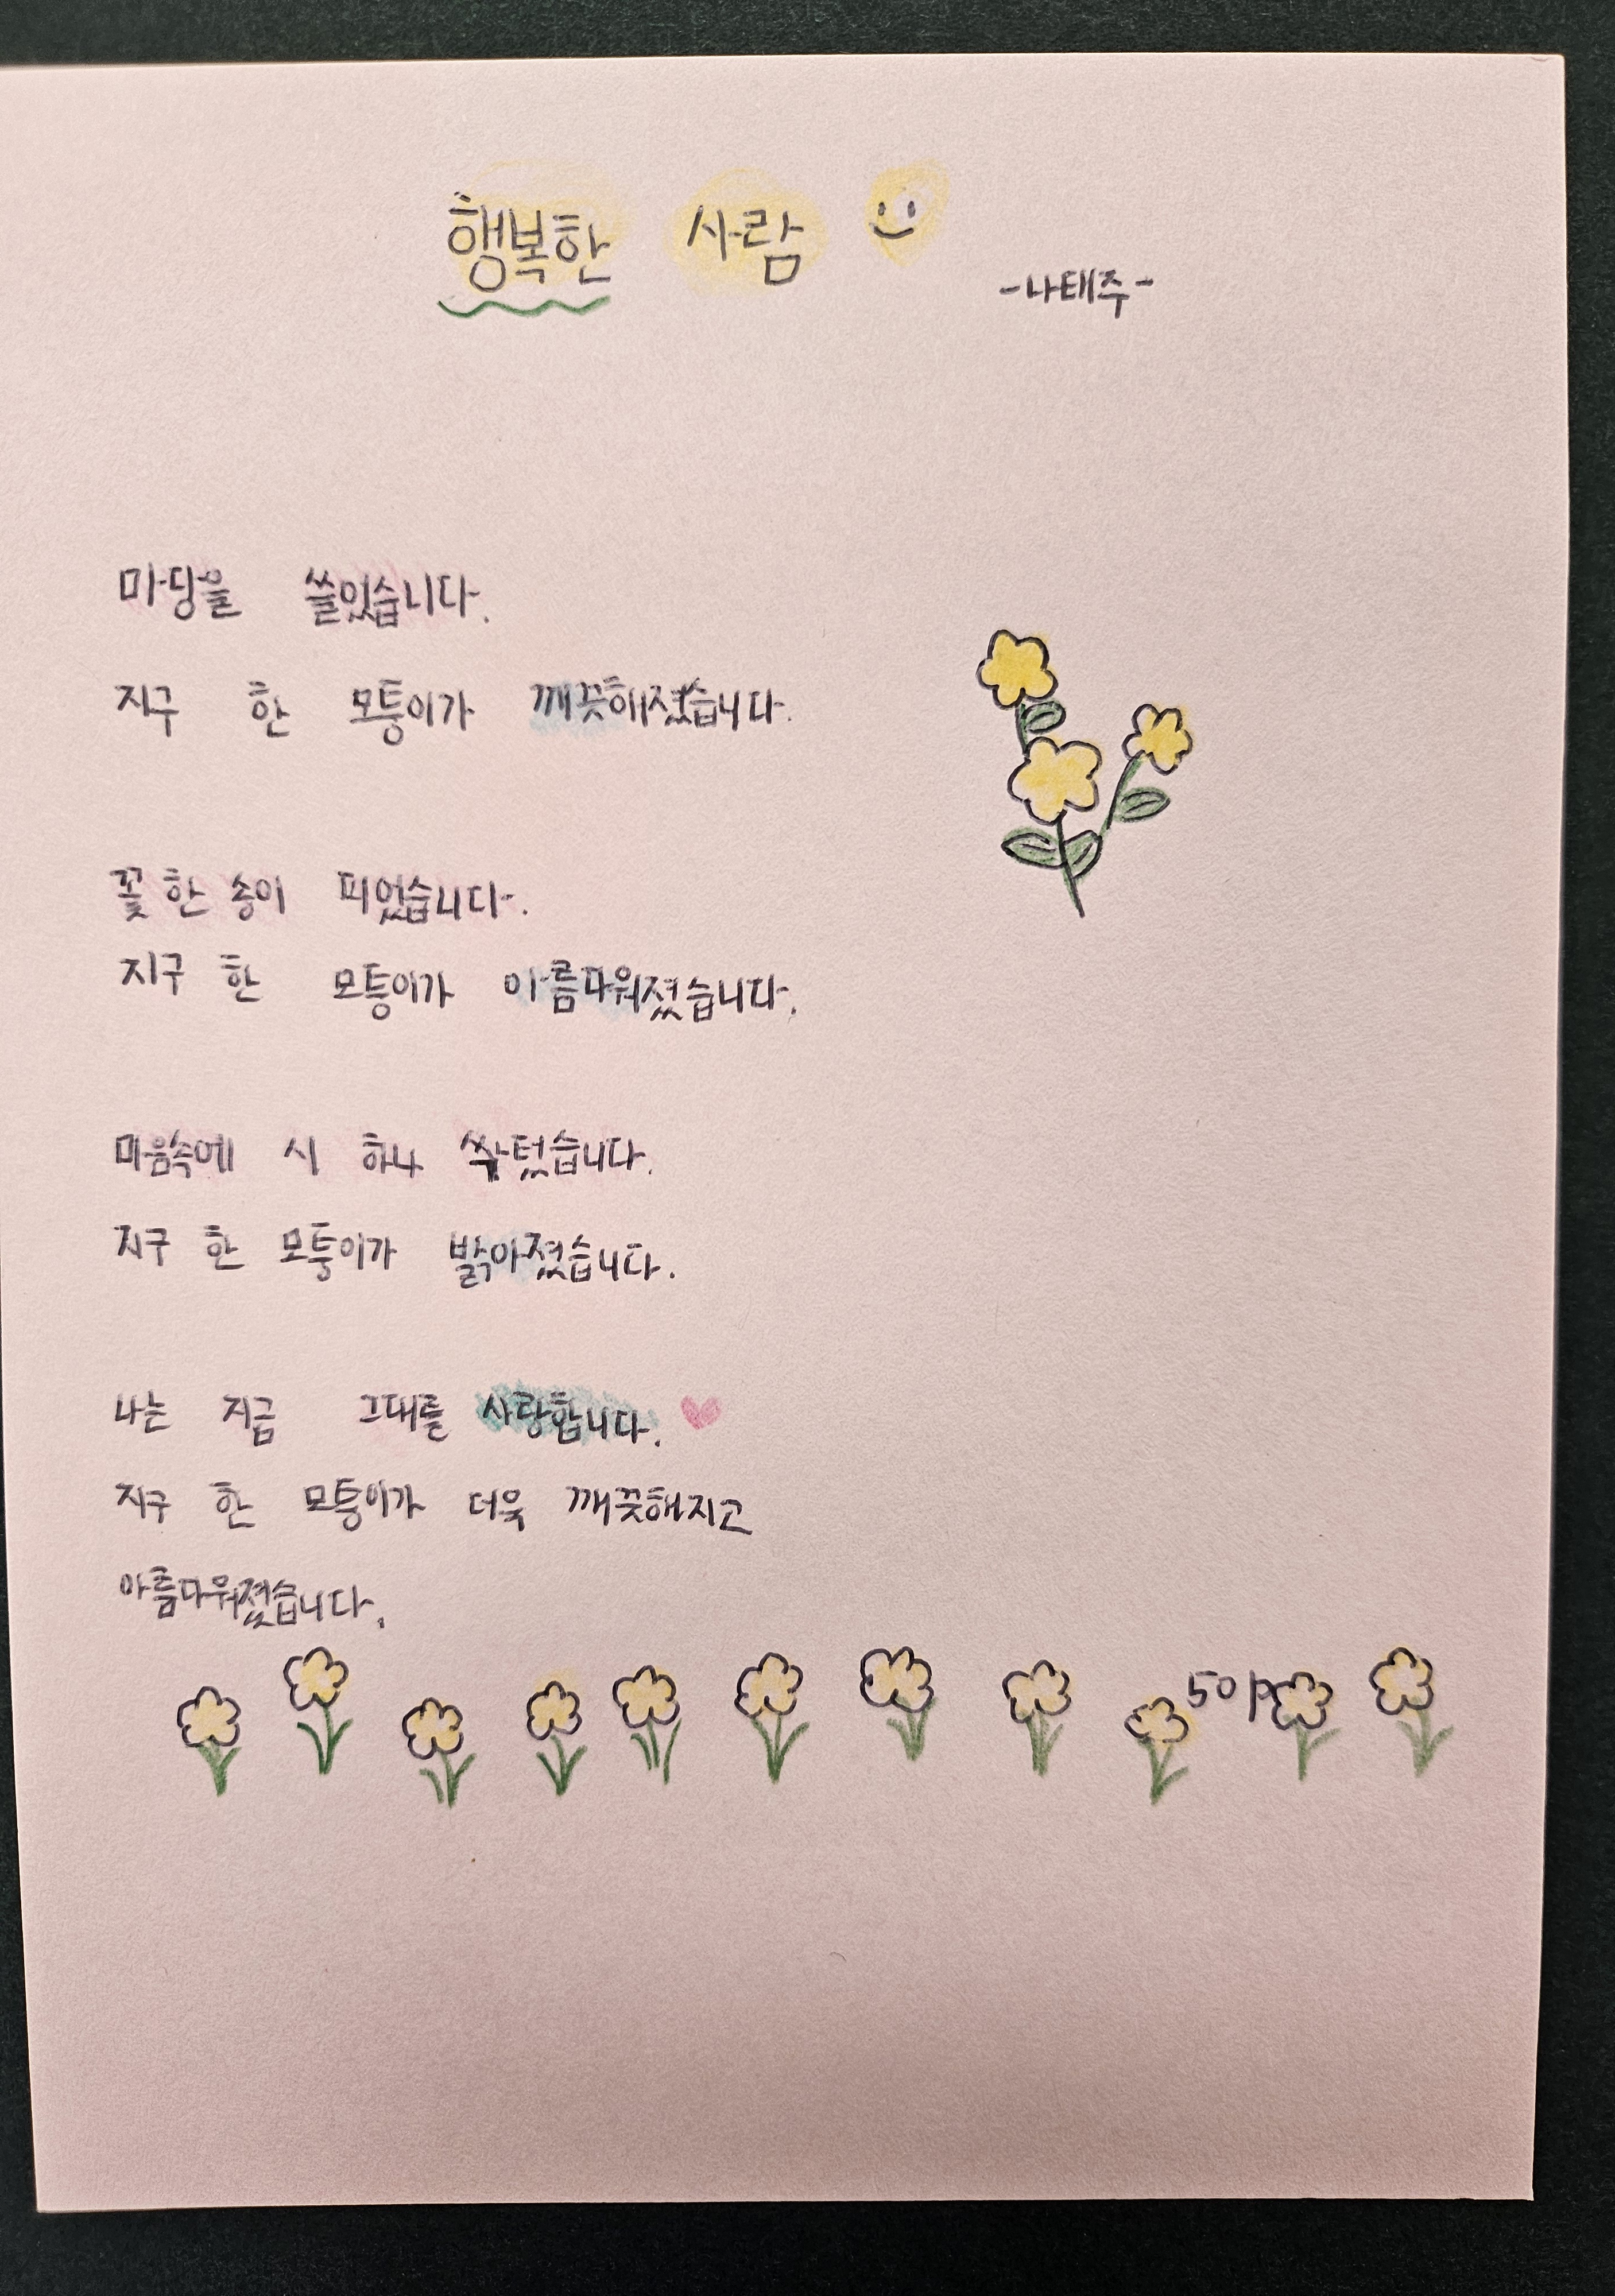 행복한 사람
-나태주-
마당을 쓸었습니다.
지구 한 모퉁이가 깨끗해졌습니다.
꽃 한 송이 피었습니다.
지구 한 모퉁이가 아름다워졌습니다.
마음속에 시 하나 싹텄습니다.
지구 한 모퉁이가 밝아졌습니다.
나는 지금 그대를 사랑합니다.
지구 한 모퉁이가 더욱 깨끗해지고
아름다워졌습니다.
50p